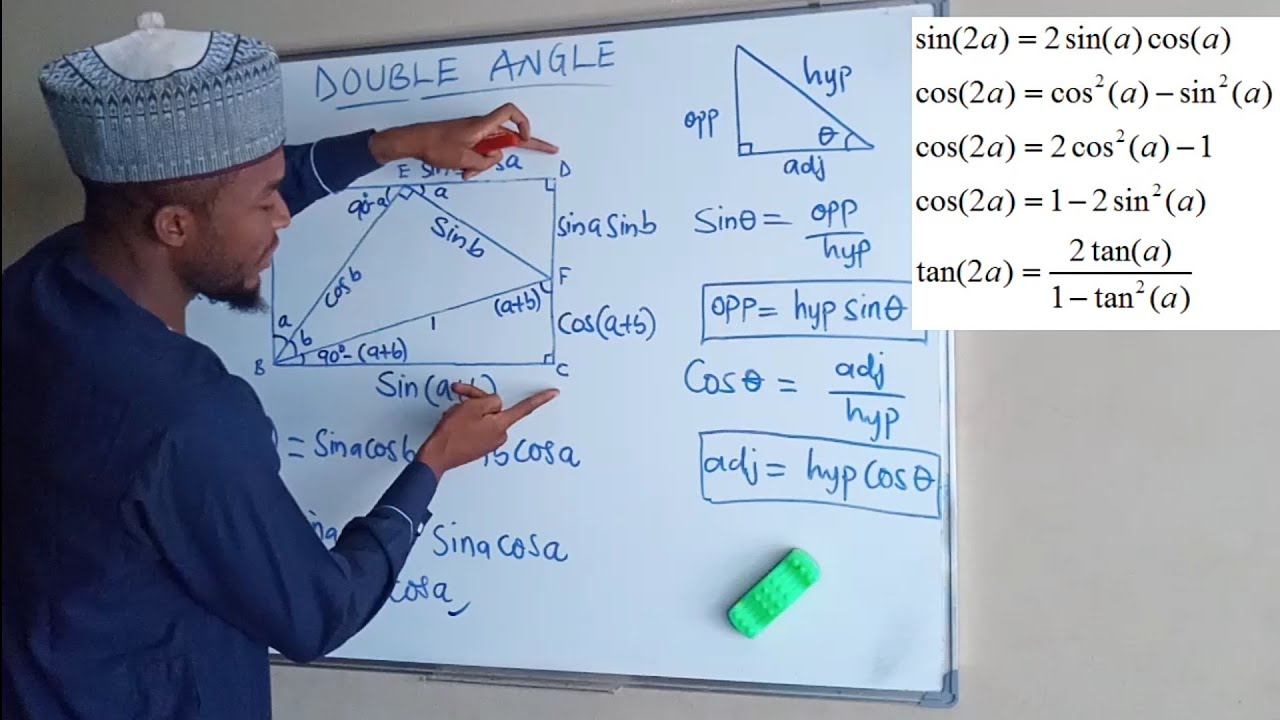 DOUBLE ANGLE
E
D
90-a
a
sinb
sinasinb
cosb
F
(a+b)
cos(a+b)
1
a
b
90°-(a+b)
B
C
Sin(a+
= sinacosb
cosa
sinacosa
cosa
hyp
opp
θ
adj
Sinθ = opp
hyp
OPP = hyp sinθ
Cosθ = adj
hyp
adj = hyp Cosθ
sin(2a) = 2 sin(a) cos(a)
cos(2a) = cos²(a) − sin²(a)
cos(2a) = 2 cos²(a) − 1
cos(2a) = 1 − 2 sin²(a)
tan(2a) = 2 tan(a)
1 − tan²(a)